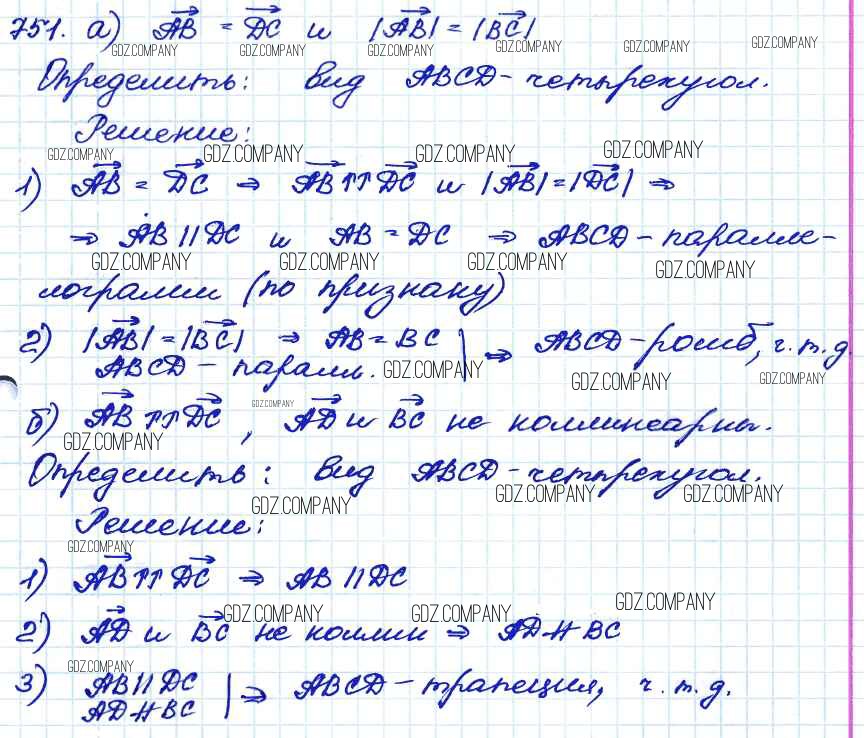 751. а) AB = DC и |AB| = |BC|
GDZ.COMPANY GDZ.COMPANY GDZ.COMPANY GDZ.COMPANY GDZ.COMPANY GDZ.COMPANY
Определить: вид ABCD - четырехугол.
Решение:
GDZ.COMPANY GDZ.COMPANY GDZ.COMPANY GDZ.COMPANY
1) AB = DC ⇒ AB ↑↑ DC и |AB| = |DC| ⇒
⇒ AB || DC и AB = DC ⇒ ABCD - паралле-
GDZ.COMPANY GDZ.COMPANY GDZ.COMPANY GDZ.COMPANY
лограмм (по признаку)
2) |AB| = |BC| ⇒ AB = BC | ⇒ ABCD - ромб, ч.т.д.
ABCD - паралл. GDZ.COMPANY GDZ.COMPANY GDZ.COMPANY
б) AB ↑↑ DC, AD и BC не коллинеарны.
GDZ.COMPANY GDZ.COMPANY
Определить: вид ABCD - четырехугол.
GDZ.COMPANY GDZ.COMPANY GDZ.COMPANY
Решение:
GDZ.COMPANY
1) AB ↑↑ DC ⇒ AB || DC
GDZ.COMPANY GDZ.COMPANY GDZ.COMPANY
2) AD и BC не коллин ⇒ AD ∦ BC
GDZ.COMPANY
3) AB || DC | ⇒ ABCD - трапеция, ч.т.д.
AD ∦ BC